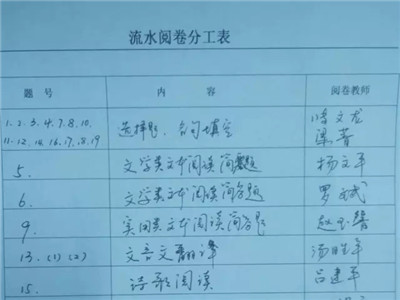 流水阅卷分工表
题号 内容 阅卷教师
1.2.3.4.7.8.10.
11.12.14.16.17.18.19 选择题、名句填空
5. 文学类文本阅读简答题 杨文军
6. 文学类文本阅读简答题 罗斌
9. 实用类文本阅读简答题
13.(1)(2) 文言文翻译
15. 诗歌阅读 吕建军